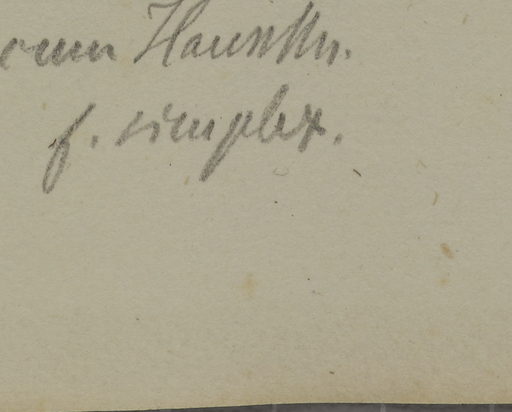 orum Hausskn.
f. simplex.